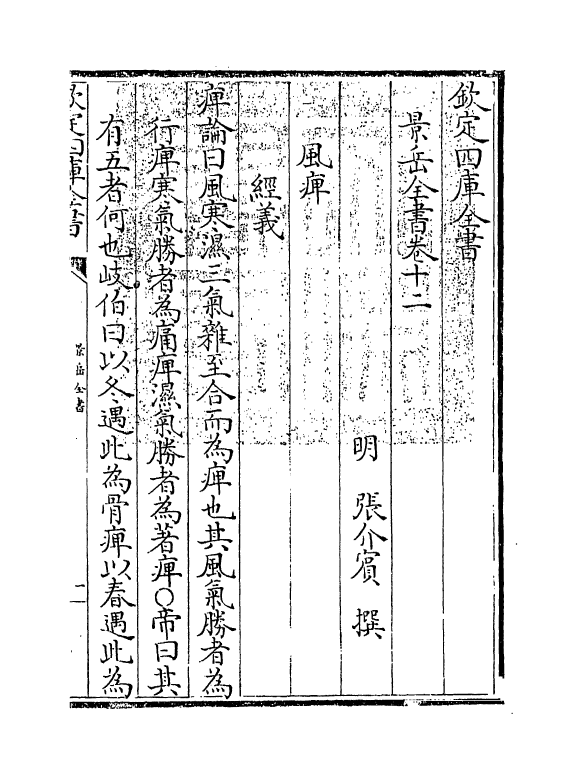 欽定四庫全書
景岳全書卷十二
明　張介賓　撰
風痺
經義
痺論曰風寒濕三氣雜至合而為痺也其風氣勝者為
行痺寒氣勝者為痛痺濕氣勝者為著痺○帝曰其
有五者何也岐伯曰以冬遇此為骨痺以春遇此為
欽定四庫全書
景岳全書
一